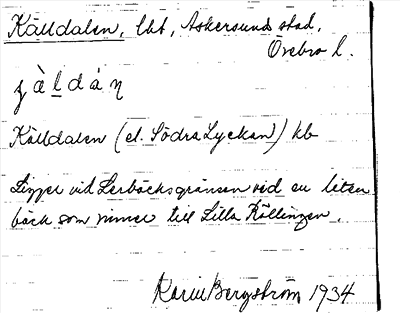 Källdalen, lht, Askersunds stad,
Örebro l.
Källdalen (el. Södra Lyckan) kb
Ligger vid Lerbäcksgränsen vid en liten
bäck som rinner till Lilla Källingen.
Karin Bergström 1934